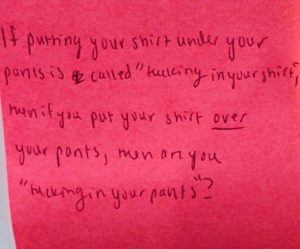 If putting your shirt under your
pants is called "tucking in your shirt",
then if you put your shirt over
your pants, then are you
"tucking in your pants"?